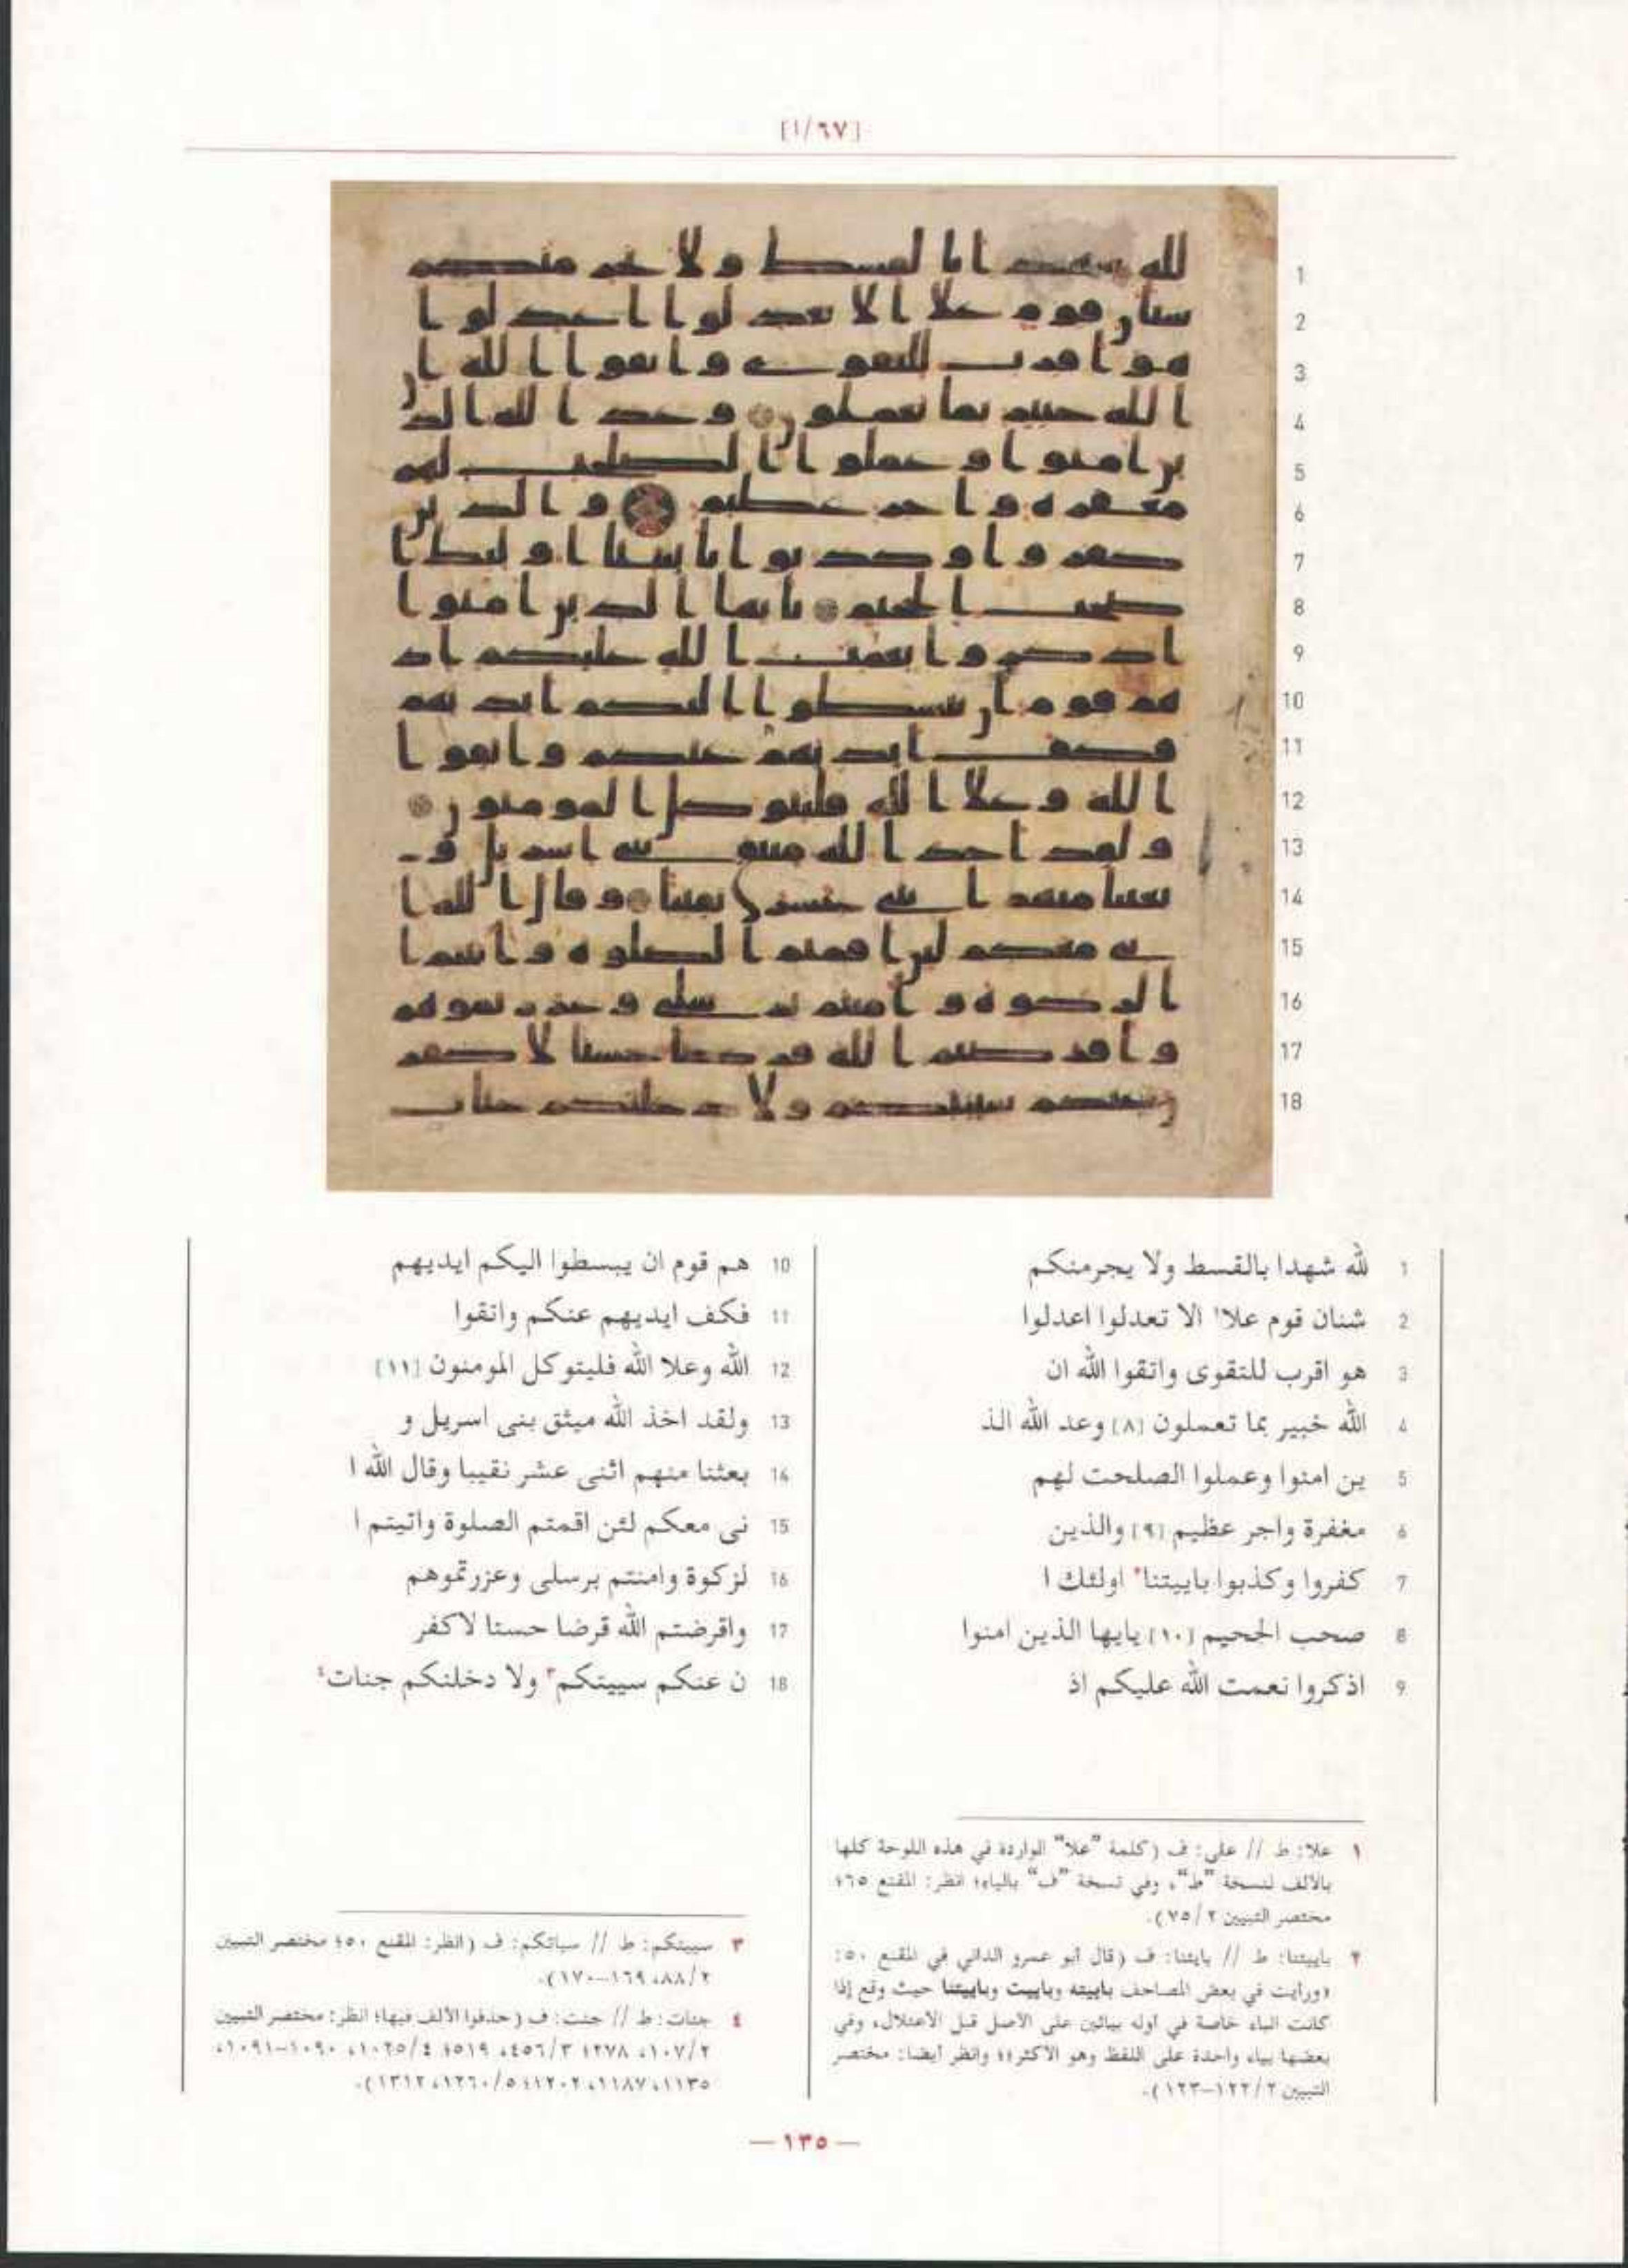 [٦٧/ا]
1 لله شهدا بالقسط ولا يجرمنكم
2 شنان قوم علا١ الا تعدلوا اعدلوا
3 هو اقرب للتقوى واتقوا الله ان
4 الله خبير بما تعملون [٨] وعد الله الذ
5 ين امنوا وعملوا الصلحت لهم
6 مغفرة واجر عظيم [٩] والذين
7 كفروا وكذبوا باييتنا٢ اولئك ا
8 صحب الجحيم [١٠] يايها الذين امنوا
9 اذكروا نعمت الله عليكم اذ
10 هم قوم ان يبسطوا اليكم ايديهم
11 فكف ايديهم عنكم واتقوا
12 الله وعلا الله فليتوكل المومنون [١١]
13 ولقد اخذ الله ميثق بنى اسريل و
14 بعثنا منهم اثنى عشر نقيبا وقال الله ا
15 نى معكم لئن اقمتم الصلوة واتيتم ا
16 لزكوة وامنتم برسلى وعزرتموهم
17 واقرضتم الله قرضا حسنا لاكفر
18 ن عنكم سييتكم٣ ولا دخلنكم جنات٤
١ علا: ط // على: ف (كلمة "علا" الواردة في هذه اللوحة كلها
بالألف لنسخة "ط"، وفي نسخة "ف" بالياء؛ انظر: المقنع ٦٥؛
مختصر التبيين ٧٥/٢).
٢ باييتنا: ط // بايتنا: ف (قال أبو عمرو الداني في المقنع ٥٠:
«ورأيت في بعض المصاحف باييته وباييت وباييتنا حيث وقع إذا
كانت الباء خاصة في أوله بيائين على الأصل قبل الاعتلال، وفي
بعضها بياء واحدة على اللفظ وهو الأكثر»؛ وانظر أيضا: مختصر
التبيين ١٢٢/٢–١٢٣).
٣ سييتكم: ط // سياتكم: ف (انظر: المقنع ٥٠؛ مختصر التبيين
٨٨/٢، ١٦٩–١٧٠).
٤ جنات: ط // جنت: ف (حذفوا الألف فيها؛ انظر: مختصر التبيين
١٠٧/٢، ٢٧٨؛ ٤٥٦/٣، ٥١٩؛ ١٠٢٥/٤، ١٠٩٠–١٠٩١،
١١٣٥، ١١٨٧، ١٢٠٢؛ ١٢٦٠/٥، ١٣١٢).
— ١٣٥ —